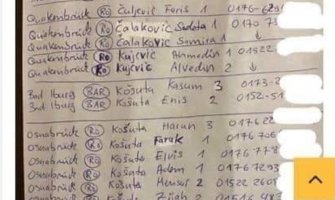 Quakenbrück (RO) Čuljević Feris 1 0176-629
Quakenbrück (RO) Čalaković Sedeta 1 0170 73
Quakenbrück (RO) Čalaković Samira 1
Quakenbrück (RO) Kujević Ahmedin 1 01522
Quakenbrück (RO) Kujević Alvedin 2
Bad Iburg (BAR) Košuta Kasum 3 0173-2
Bad Iburg (BAR) Košuta Enis 2 0152-51
Osnabrück (RO) Košuta Harun 3 01766
Osnabrück (RO) Košuta Faruk 1 0176 706
Osnabrück (RO) Košuta Elvis 1 0176 778
Osnabrück (RO) Košuta Adem 1 0176 7293
Osnabrück (RO) Košuta Mensur 2 01522 2601
Osnabrück (RO) Košuta 2 01516 483